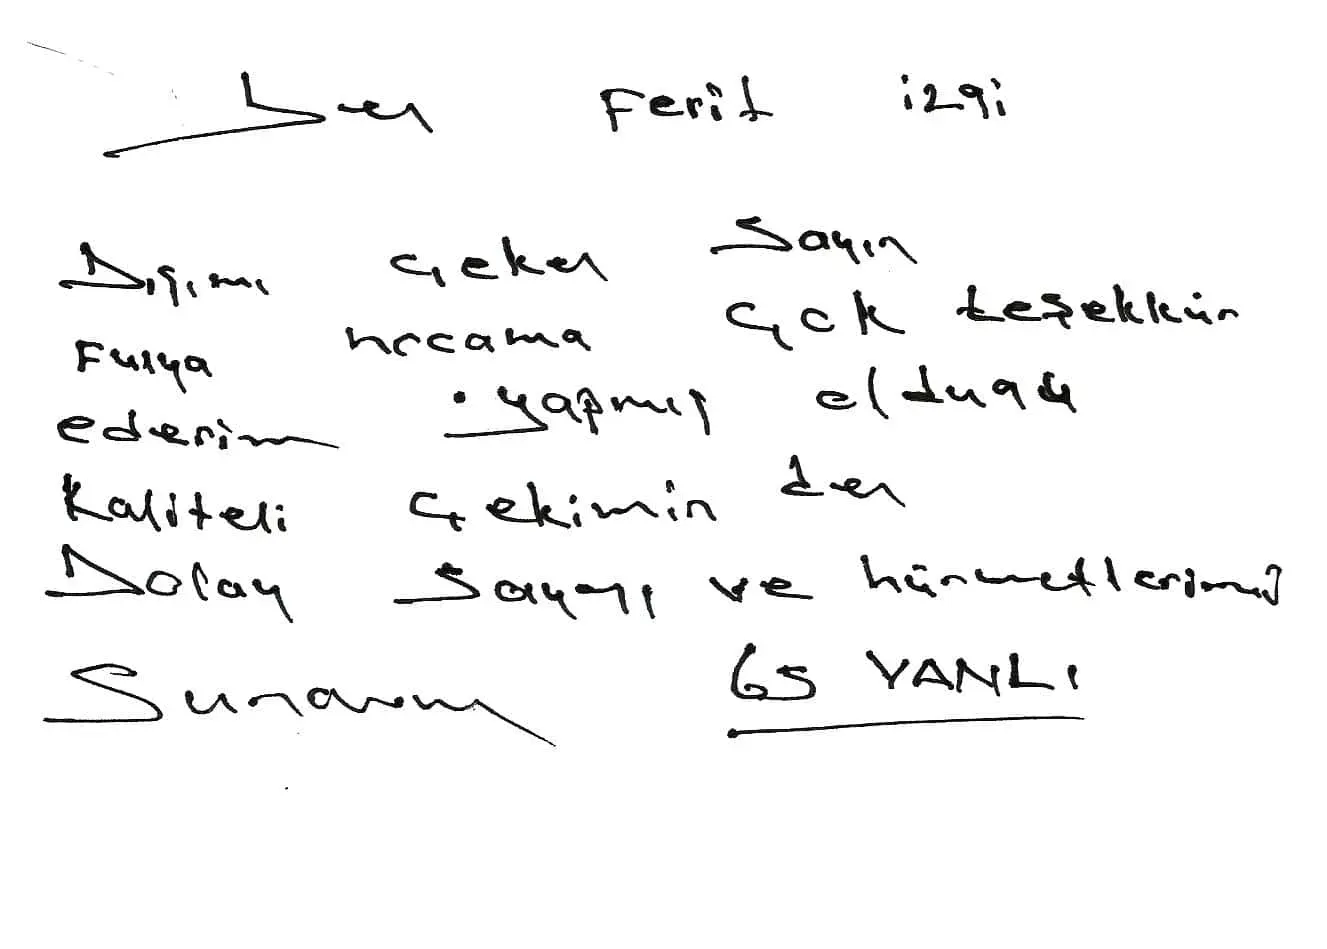 Ben Ferit izgi
Dişimi çeken Sayın
Fulya hocama çok teşekkür
ederim yapmış olduğu
Kaliteli çekimin den
Dolay Saygı ve hürmetlerimi
Sunarım GS YANLI